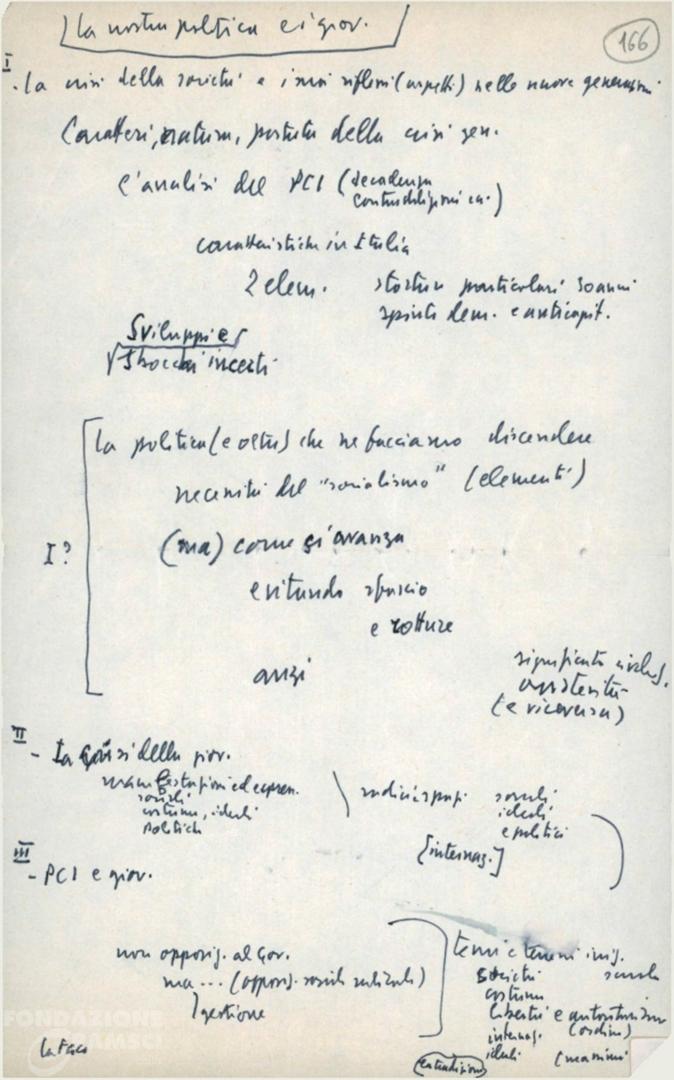 La nostra politica e i giov.
166
I
- La crisi della società e i suoi riflessi (aspetti) nelle nuove generazioni
Caratteri, natura, portata della crisi gen.
L'analisi del PCI (decadenza
contraddizioni ec.)
caratteristiche in Italia
2 elem. storture particolari 30 anni
spinte dem. e anticapit.
Sviluppi e
sbocchi incerti
La politica (e oltre) che ne facciamo discendere
necessità del "socialismo" (elementi)
I? (ma) come si avanza
evitando sfascio
e rotture
anzi
significato
austerità
(e viceversa)
II
- La crisi della giov.
manifestazioni ed espress.
sociali
costume, ideali
politiche
radici sociali
ideali
e politici
[internaz.]
III
- PCI e giov.
non opposiz. al gov.
ma... (opposiz. sociale radicale)
gestione
temi e terreni
società scuola
costume
libertà e autoritarismo
internaz. (ordine)
ideali
FONDAZIONE
GRAMSCI